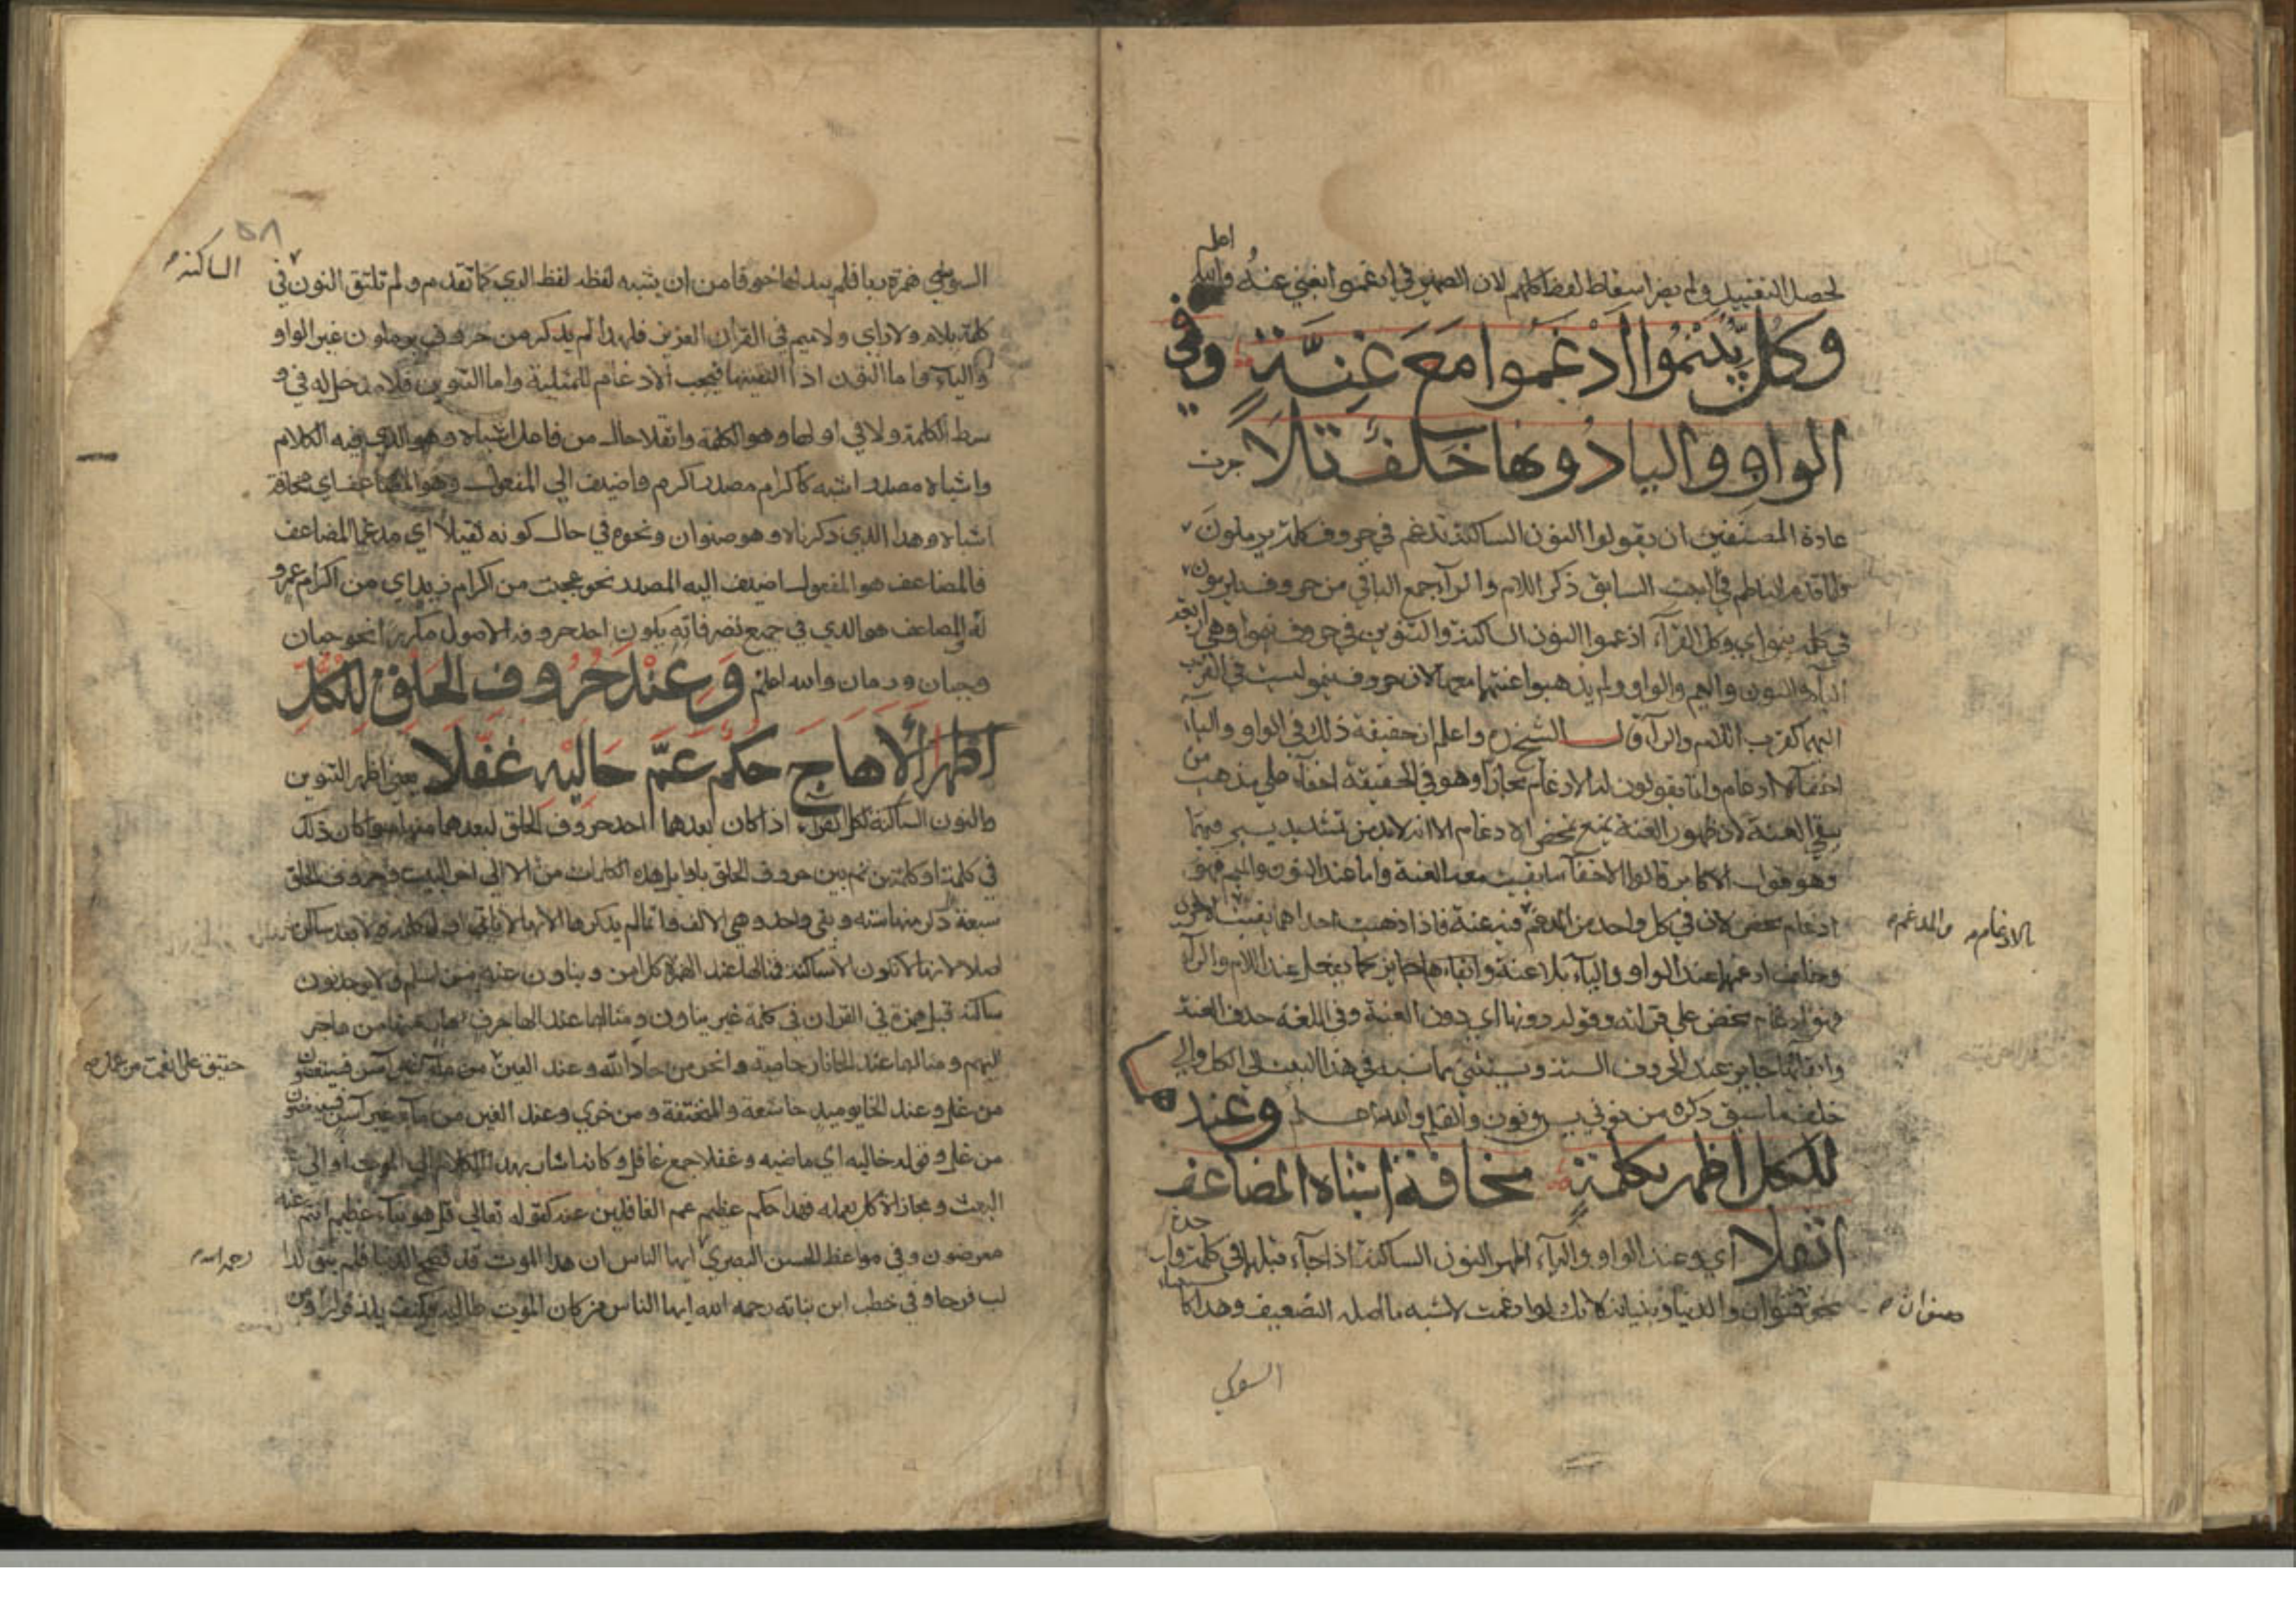 اعلم
لحصل التقييد ولم يضر اسقاط لفظ كلهم لان الضمير في ادغموا يغني عنه والله
وكل بينموا ادغموا مع غنة وفي
الواو واليا دونها خلف تلا جرت
عادة المصنفين ان يقولوا النون الساكنة تدغم في حروف كلمة يرملون
فلما قدم الناظم في البيت السابق ذكر اللام والرآ جمع الباقي من حروف يرملون
في كلمة ينمو اي وكل القرآء ادغموا النون الساكنة والتنوين في حروف ينموا وهي اربعة
اليآء والنون والميم والواو ولم يذهبوا غنتهما معها لان حروف ينمو ليست في القرب
اليهما كقرب اللام والرآ قال الشيخ واعلم ان حقيقة ذلك في الواو واليآء
اخفآء لا ادغام وانما يقولون له الادغام مجازا وهو في الحقيقة اخفآء على مذهب من
يبقي الغنة لان ظهور الغنة يمنع تمحض الادغام الا انه لابد من تشديد يسير فيهما
وهو قول الاكابر قالوا الاخفآء ما بقيت معه الغنة واما عند النون والميم فهو
ادغام محض لان في كل واحد من المدغم فيه غنة فاذا ذهبت احداهما بقيت الاخرى
بالادغام والمدغم
وخلف ادغمها عند الواو واليآء بلا غنة كما يفعل عند اللام والرآء
فهو ادغام محض على قرآته وقوله دونها اي دون الغنة وفي اللغة حذف الغنة
وابقآئها جايز عند الحروف الستة ويستثنى مما نسبه في هذا البيت الى الكل والى
خلف ما سبق ذكره من نوني يس ونون والقلم والله اعلم وعندهما
للكل اظهر بكلمة مخافة اشباه المضاعف
اثقلا اي وعند الواو واليآء اظهر النون الساكنة اذا جآء قبلها في كلمة واحدة
نحو قنوان والدنيا وبنيان لانك لو ادغمت لاشبه ما اصله التضعيف وهذا كما
صنوان
السوسي
٥٨
السوسي همزة رءيا فلم يبدلها خوفا من ان يشبه لفظه لفظ الري كما تقدم ولم تلتق النون في
الساكنة
كلمة بلام ولا راي ولا ميم في القرآن العزيز فلهذا لم يذكر من حروف يرملون غير الواو
واليآء واما النون اذا لقيتها فيجب الادغام للمثلية واما التنوين فلا مدخل له في و
سط الكلمة ولا في اولها واثقلا حال من فاعل اشباه وهو الذي فيه الكلام
واشباه مصدر اشبه كاكرام مصدر اكرم فاضيف الى المفعول وهو المضاعف اي مخافة
اشباه وهذا الذي ذكرناه وهو صنوان ونحوه في حال كونه ثقيلا اي مدغما المضاعف
فالمضاعف هو المفعول اضيف اليه المصدر نحو عجبت من اكرام زيد اي من اكرام عمرو
له والمضاعف هو الذي في جميع تصرفاته يكون احد حروفه الاصول مكررا نحو حيان
وجبان ورمان والله اعلم وعند حروف الحلق للكل
اظهرا ألا هاج حكم عم خاليه غفلا يعني اظهر التنوين
والنون الساكنة لكل القرآء اذا كان بعدهما احد حروف الحلق سوا كان ذلك
في كلمة او كلمتين ثم بين حروف الحلق باوايل هذه الكلمات من الا الى اخر البيت وحروف الحلق
سبعة ذكر منها ستة وبقي واحد وهي الالف وانما لم يذكرها لانها لا ياتي اول كلمة ولا بعد ساكن
اصلا لانها لا تكون الا ساكنة فمثالها عند الهمزة كل امن وينأون عنه من اسلم ولا يوجد نون
ساكنة قبل همزة في القران في كلمة غير ينأون ومثالها عند الها جرف هار منها من هاجر
اليهم ومثالها عند الحا نار حامية وانحر من حاد الله وعند العين
حقيق على انعمت من عمل
من عل وعند الخا يوميذ خاشعة والمنخنقة ومن خزي وعند الغين من مآء غير آسن فسينغضون
من غل وقوله خاليه اي ماضيه وغفلا جمع غافل وكانه اشار بهذا الكلام الى الموت او الى
البعث ومجازاة كل بعمله فهذا حكم عظيم عم الغافلين عنه كقوله تعالى قل هو نبأ عظيم انتم عنه
معرضون وفي مواعظ الحسن البصري ايها الناس ان هذا الموت قد فضح الدنيا فلم يبق لذا
رحمه الله
لب فرحا وفي خطب ابن نباته رحمه الله ايها الناس من كان الموت طالبه فكيف يلذ قرارا ومن